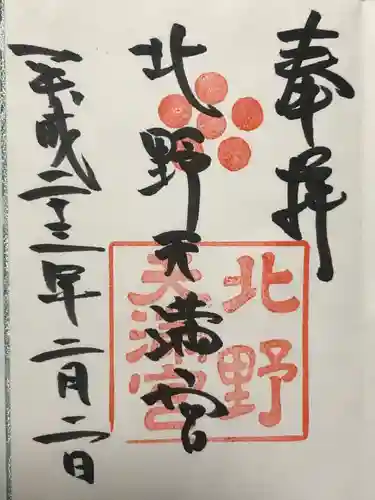 奉拝
北野天満宮
平成二十三年二月二日
北野
天満宮